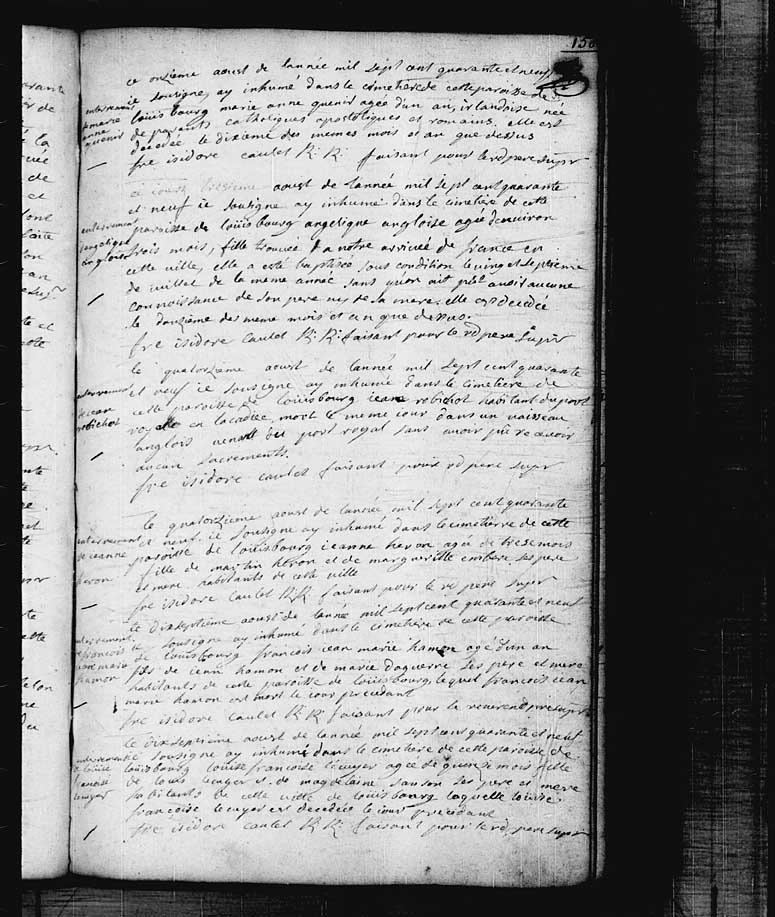 150
ce onzieme aoust de lannée mil sept cent quarante et neuf
ie sousigne ay inhumé dans le cimetiere de cette paroisse de
enterrement
louisbourg marie anne quenir agée d'un an, irlandoise née
de marie
anne
quenir
de parents catholiques apostoliques et romains. elle est
decedée le dixieme des memes mois et an que dessus
fre isidore caulet R: R: faisant pour le rd pere supr
ce tresieme aoust de lannée mil sept cent quarante
et neuf ie sousigne ay inhumé dans le cimetiere de cette
enterrement
paroisse de loüisbourg angelique angloise agée denviron
dangelique
angloise
trois mois, fille trouvée a notre arrivée de france en
cette ville, elle a esté baptisée sous condition le vingt et septieme
de iuillet de la meme année sans quon ait pût avoir aucune
connoissance de son pere ny de sa mere. elle est decedée
le douzieme des meme mois et an que dessus.
fre isidore caulet R: R: faisant pour le rd pere supr
le quatorzieme aoust de lannée mil sept cent quarante
enterrement
et neuf ie sousigne ay inhumé dans le cimetiere de
de iean
robichot
cette paroisse de loüisbourg iean robichot habitant du port
royalle en lacadiee, mort le meme iour dans un vaisseau
anglois venant du port royal sans avoir pû recevoir
aucun sacrements.
fre isidore caulet faisant pour rd pere supr
le quatorzieme aoust de lannée mil sept cent quarante
enterrement
et neuf. ie sousigné ay inhumé dans le cimetierre de cette
de ieanne
heron
paroisse de loüisbourg ieanne heron agée de trese mois
fille de martin heron et de margueritte ses pere
et mere habitants de cette ville
fre isidore caulet R: R: faisant pour le rd pere supr
le dixseptieme aoust de lannée mil sept cent quarante et neuf
enterrement
ie sousigne ay inhumé dans le cimetiere de cette paroisse
de francois
iean marie
hamon
de loüisbourg francois iean marie hamon agé d'un an
fils de iean hamon et de marie daguerre ses pere et mere
habitants de cette paroisse de loüisbourg, lequel francois iean
marie hamon est mort le iour precedant
fre isidore caulet R: R: faisant pour le reverend pre supr
le dixseptieme aoust de lannée mil sept cent quarante et neuf
enterrement
ie sousigne ay inhumé dans le cimetiere de cette paroisse de
de loüise
francoise
lecuyer
loüisbourg loüise francoise lecuyer agée de quinse mois, fille
de loüis lecuyer et de magdelaine sanson ses pere et mere
habitants de cette ville de loüisbourg laquelle loüise
francoise lecuyer est decedée le iour precedant
fre isidore caulet R: R: faisant pour le rd pere supr